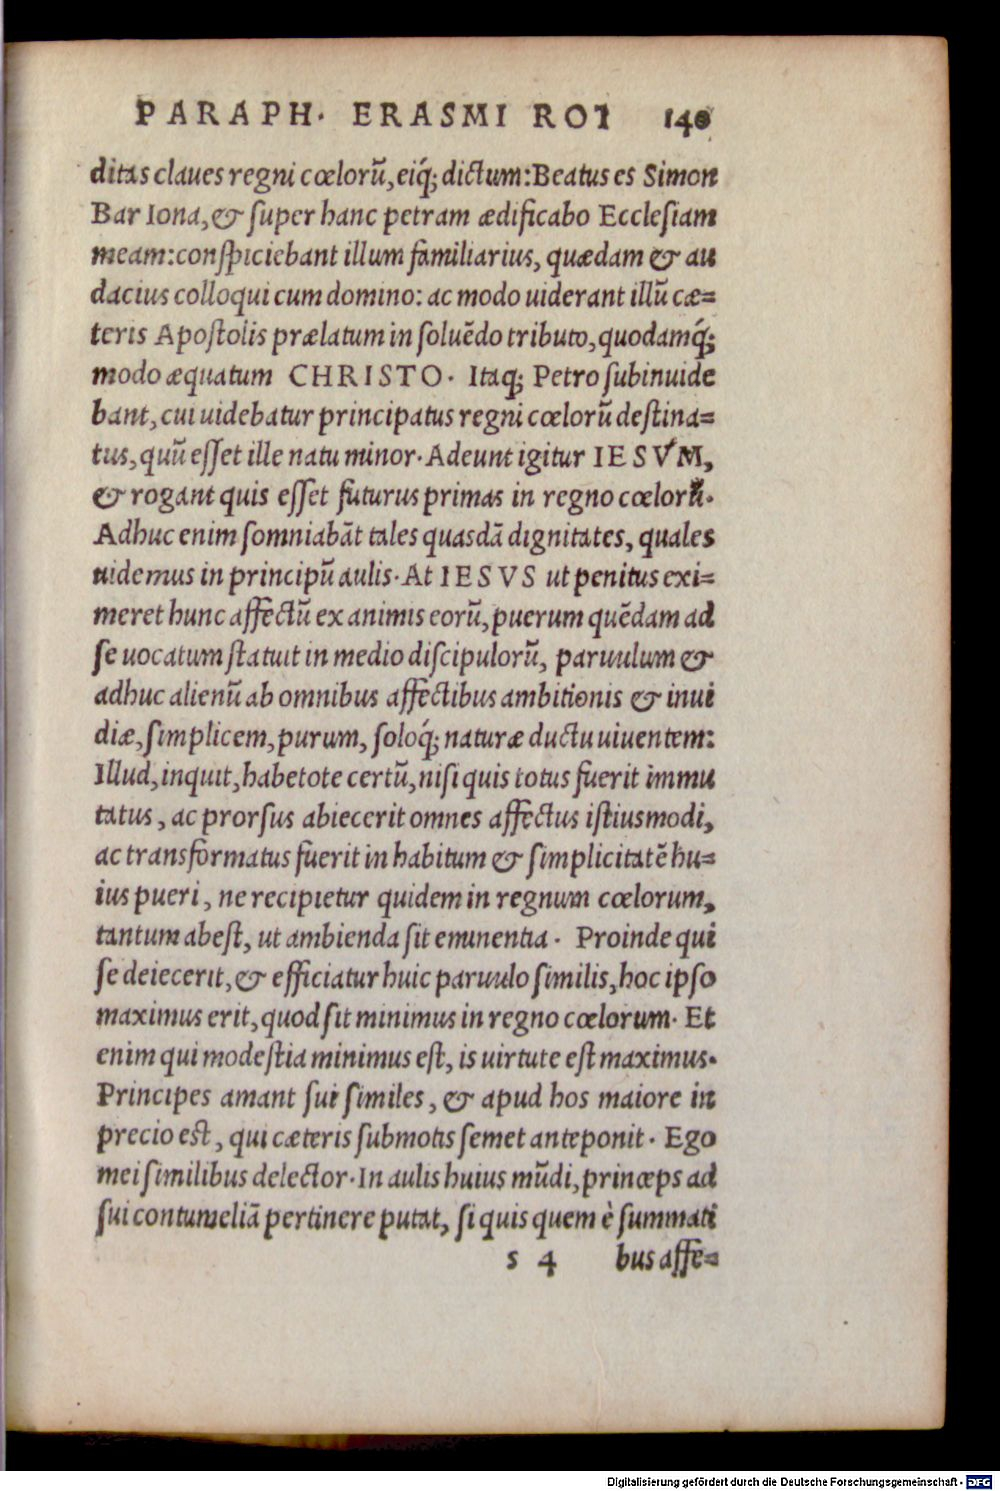 PARAPH. ERASMI ROT 140
ditas claues regni cœlorũ, eiq́; dictum: Beatus es Simon
Bar Iona, & super hanc petram ædificabo Ecclesiam
meam: conspiciebant illum familiarius, quædam & au
dacius colloqui cum domino: ac modo uiderant illũ cæ=
teris Apostolis prælatum in soluẽdo tributo, quodamq́;
modo æquatum CHRISTO. Itaq; Petro subinuide
bant, cui uidebatur principatus regni cœlorũ destina=
tus, quũ esset ille natu minor. Adeunt igitur IESVM,
& rogant quis esset futurus primas in regno cœlorũ.
Adhuc enim somniabãt tales quasdã dignitates, quales
uidemus in principũ aulis. At IESVS ut penitus exi=
meret hunc affectũ ex animis eorũ, puerum quẽdam ad
se uocatum statuit in medio discipulorũ, paruulum &
adhuc alienũ ab omnibus affectibus ambitionis & inui
diæ, simplicem, purum, soloq́; naturæ ductu uiuentem:
Illud, inquit, habetote certũ, nisi quis totus fuerit immu
tatus, ac prorsus abiecerit omnes affectus istiusmodi,
ac transformatus fuerit in habitum & simplicitatẽ hu=
ius pueri, ne recipietur quidem in regnum cœlorum,
tantum abest, ut ambienda sit eminentia. Proinde qui
se deiecerit, & efficiatur huic paruulo similis, hoc ipso
maximus erit, quod sit minimus in regno cœlorum. Et
enim qui modestia minimus est, is uirtute est maximus.
Principes amant sui similes, & apud hos maiore in
precio est, qui cæteris submotis semet anteponit. Ego
mei similibus delector. In aulis huius mũdi, princeps ad
sui contumeliã pertinere putat, si quis quem è summati
s 4 bus affe=
Digitalisierung gefördert durch die Deutsche Forschungsgemeinschaft - DFG